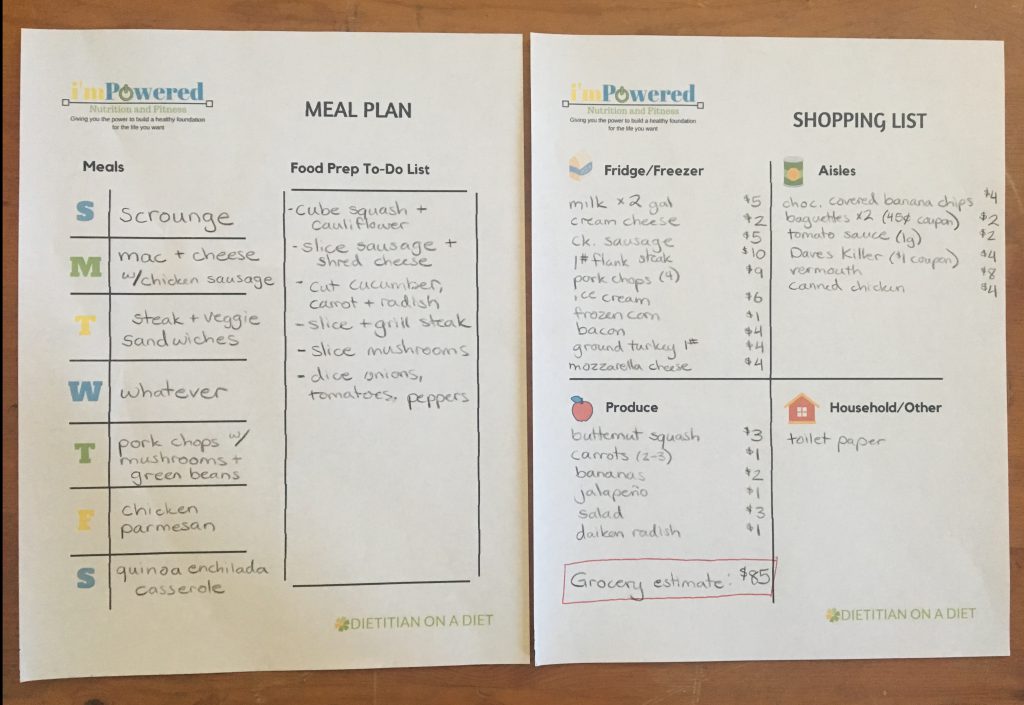 i'mPowered
Nutrition and Fitness
Giving you the power to build a healthy foundation
for the life you want
MEAL PLAN
Meals
S
Scrounge
M
mac + cheese
w/chicken sausage
T
steak + veggie
sandwiches
W
whatever
T
pork chops w/
mushrooms +
green beans
F
chicken
parmesan
S
quinoa enchilada
casserole
Food Prep To-Do List
- Cube squash +
cauliflower
- slice sausage +
shred cheese
- cut cucumber,
carrot + radish
- slice + grill steak
- slice mushrooms
- dice onions,
tomatoes, peppers
DIETITIAN ON A DIET
i'mPowered
Nutrition and Fitness
Giving you the power to build a healthy foundation
for the life you want
SHOPPING LIST
Fridge/Freezer
milk x 2 gal $5
cream cheese $2
ck. sausage $5
1# flank steak $10
pork chops (4) $9
ice cream $6
frozen corn $1
bacon $4
ground turkey 1# $4
mozzarella cheese $4
Aisles
choc. covered banana chips $4
baguettes x2 (45¢ coupon) $2
tomato sauce (1g) $2
Daves Killer ($1 coupon) $4
vermouth $8
canned chicken $4
Produce
butternut squash $3
carrots (2-3) $1
bananas $2
jalapeño $1
salad $3
daikon radish $1
Grocery estimate: $85
Household/Other
toilet paper
DIETITIAN ON A DIET